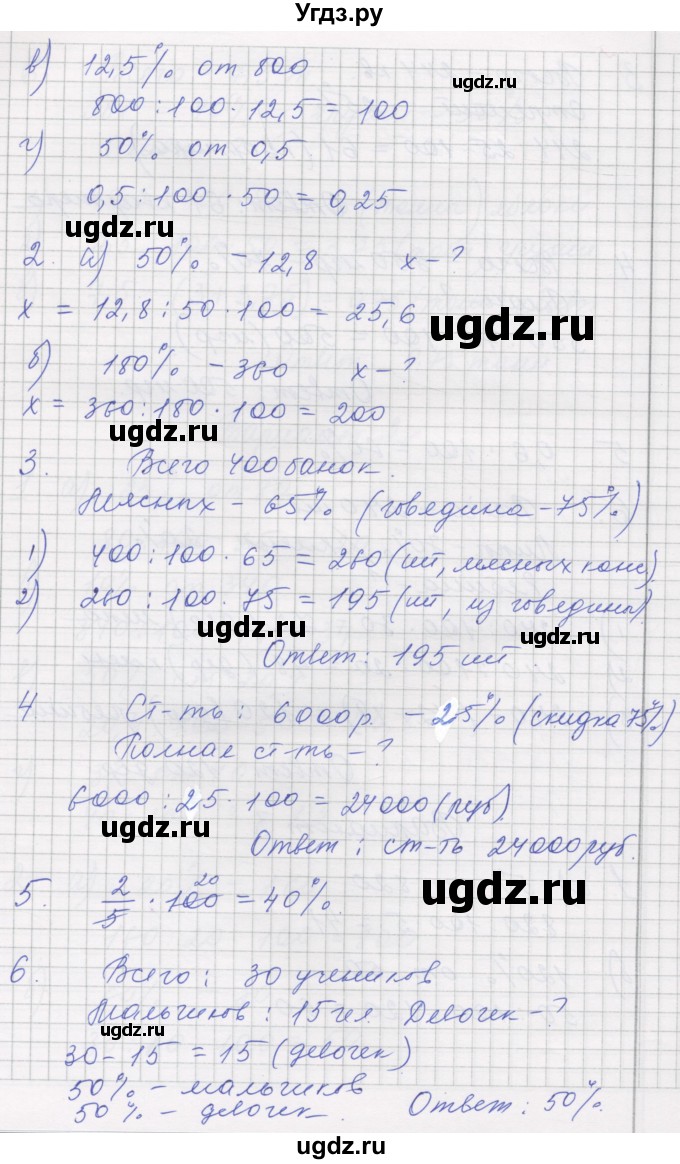 Угдз.ру
в) 12,5% от 800
ugdz.ru
800 : 100 · 12,5 = 100
г) 50% от 0,5
0,5 : 100 · 50 = 0,25
ugdz.ru
ugdz.ru
2. а) 50% – 12,8 х – ?
х = 12,8 : 50 · 100 = 25,6
ugdz.ru
б) 180% – 360 х – ?
х = 360 : 180 · 100 = 200
ugdz.ru
3. Всего 400 банок.
Мясных – 65% (говядина – 75%)
ugdz.ru
1) 400 : 100 · 65 = 260 (шт, мясных конс)
2) 260 : 100 · 75 = 195 (шт, из говядины)
ugdz.ru
ugdz.ru
Ответ: 195 шт.
4 Ст-ть: 6000р. – 25% (скидка 75%)
Полная ст-ть – ?
6000 : 25 · 100 = 24000 (руб)
ugdz.ru
Ответ: ст-ть 24000 руб.
ugdz.ru
5. 2/5 · 100 20 = 40%
6. Всего: 30 учеников
Мальчиков: 15 чел. Девочек – ?
ugdz.ru
ugdz.ru
30 – 15 = 15 (девочек)
50% – мальчиков
50% – девочек. Ответ: 50%.
ugdz.ru